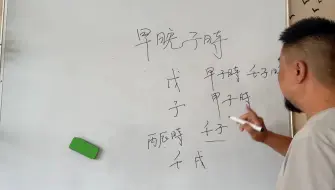 早晚子時
戊 早子時 壬子
子 甲子時
丙辰時 壬子
壬戌